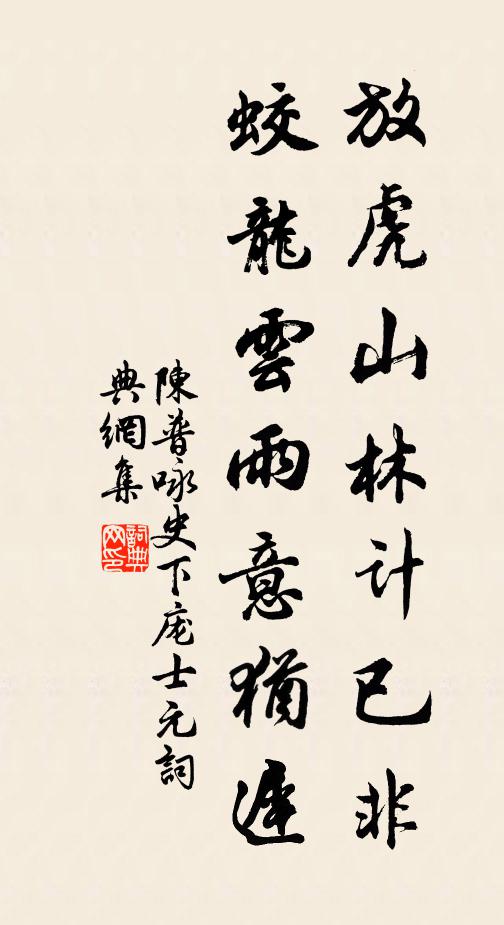 放虎山林计已非
蛟龍雲雨意猶遲
陳普咏史下庞士元詞
典網集
詞典
网印